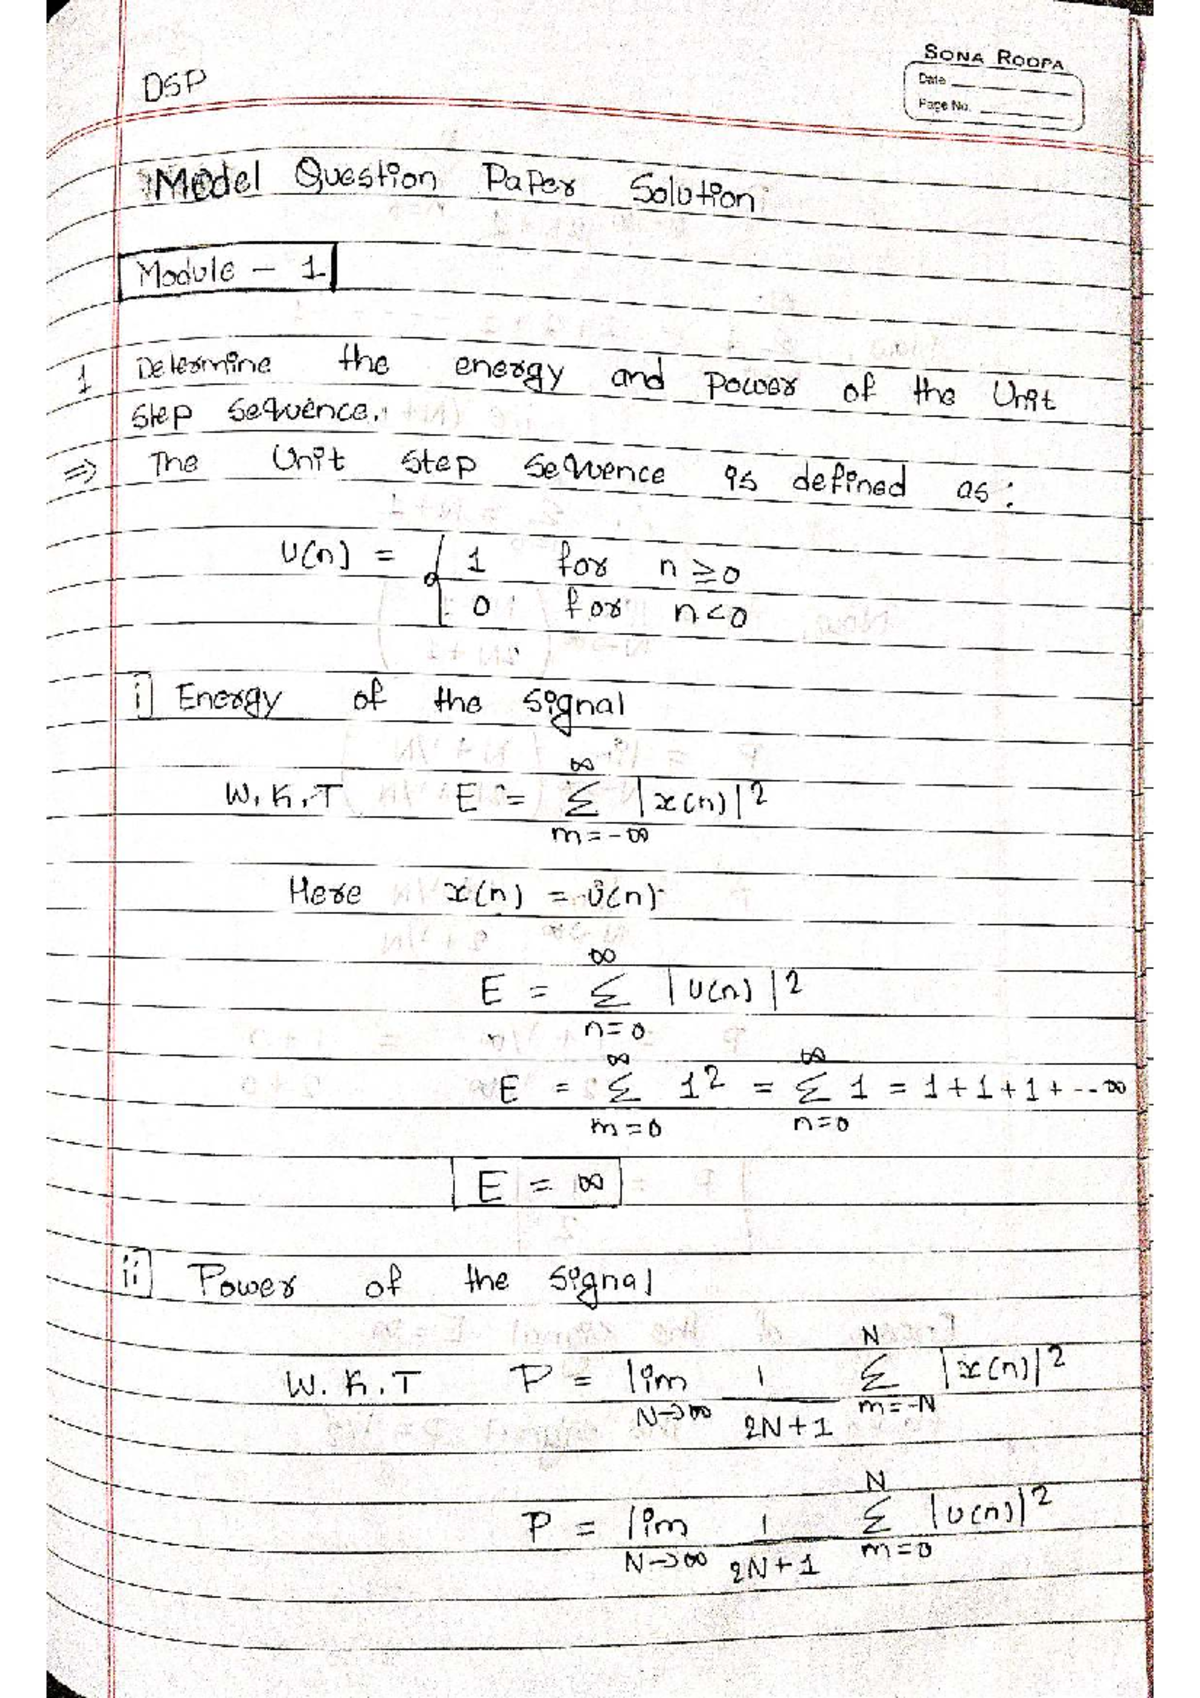 SONA ROOPA
Date
Page No.
DSP
Model Question Paper Solution
Module - 1
1 Determine the energy and power of the Unit
Step sequence.
⇒ The Unit step sequence is defined as:
U(n) = { 1 for n ≥ 0
0 for n < 0
i] Energy of the signal
W.K.T E = ∞ Σ m=-∞ |x(n)|²
Here x(n) = u(n)
E = ∞ Σ n=0 |u(n)|²
E = ∞ Σ m=0 1² = ∞ Σ n=0 1 = 1+1+1+--∞
E = ∞
ii] Power of the signal
W.K.T P = lim N→∞ 1/2N+1 N Σ m=-N |x(n)|²
P = lim N→∞ 1/2N+1 N Σ m=0 |u(n)|²